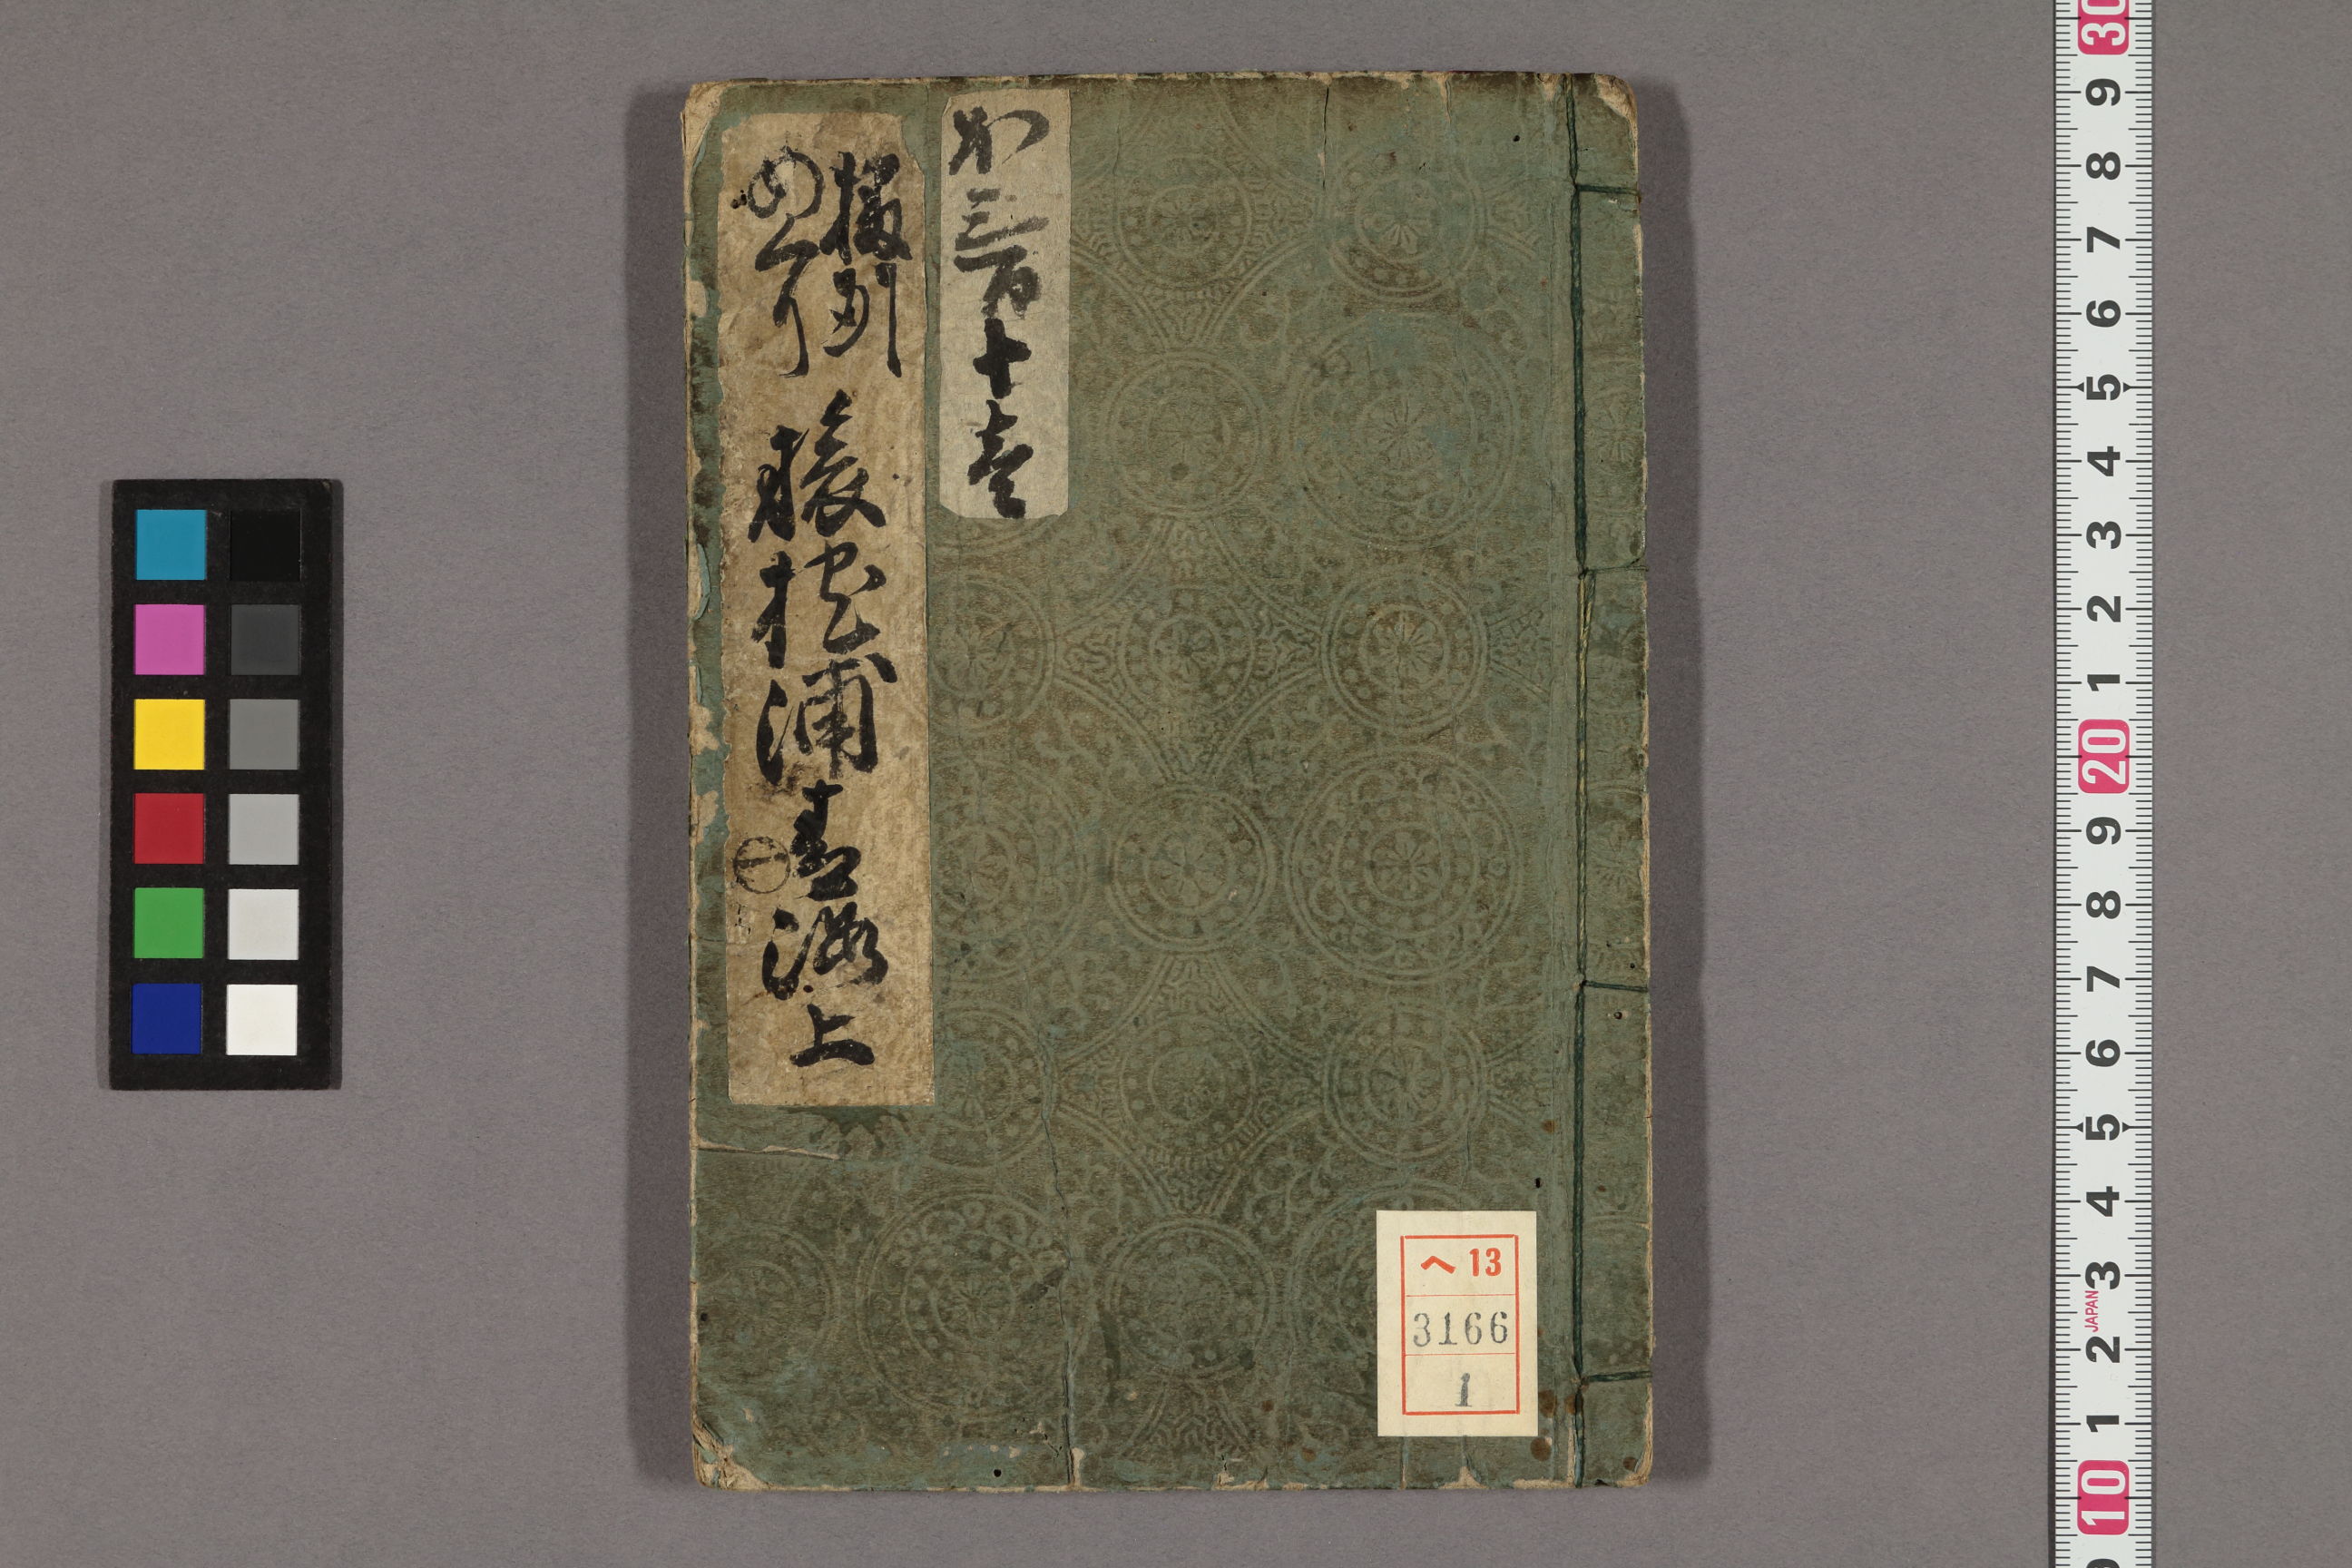 三百十壱
播州
めくり
浦 上
一
へ 13
3166
1
30
9
8
7
6
5
4
3
2
1
20
9
8
7
6
5
4
3
JAPAN
2
1
10